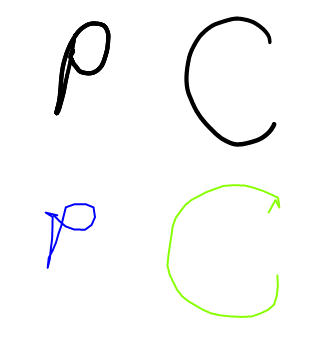 P C
P C